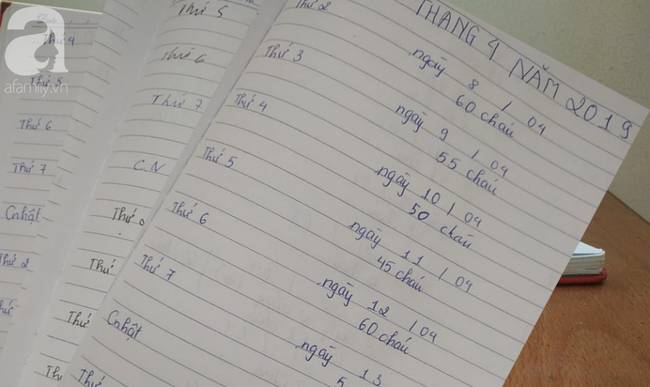 THÁNG 4 NĂM 2019
Thứ 2 ngày 8 / 04
60 cháu
Thứ 3 ngày 9 / 04
55 cháu
Thứ 4 ngày 10 / 04
50 cháu
Thứ 5 ngày 11 / 04
45 cháu
Thứ 6 ngày 12 / 04
60 cháu
Thứ 7 ngày 13
5
Cnhật
Thứ
Thứ 5
Thứ 6
Thứ 7
C.N
Thứ
Thứ
Thứ
Thứ 4
Thứ 5
Thứ 6
Thứ 7
Cnhật
Thứ 2
a
afamily.vn